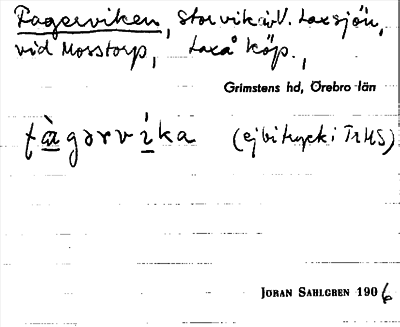 Fagerviken, stor vik i V. Laxsjön,
vid Mosstorp, Laxå köp.,
Grimstens hd, Örebro län
fàgərvíka (ej bitryck i TrHS)
JÖRAN SAHLGREN 1906